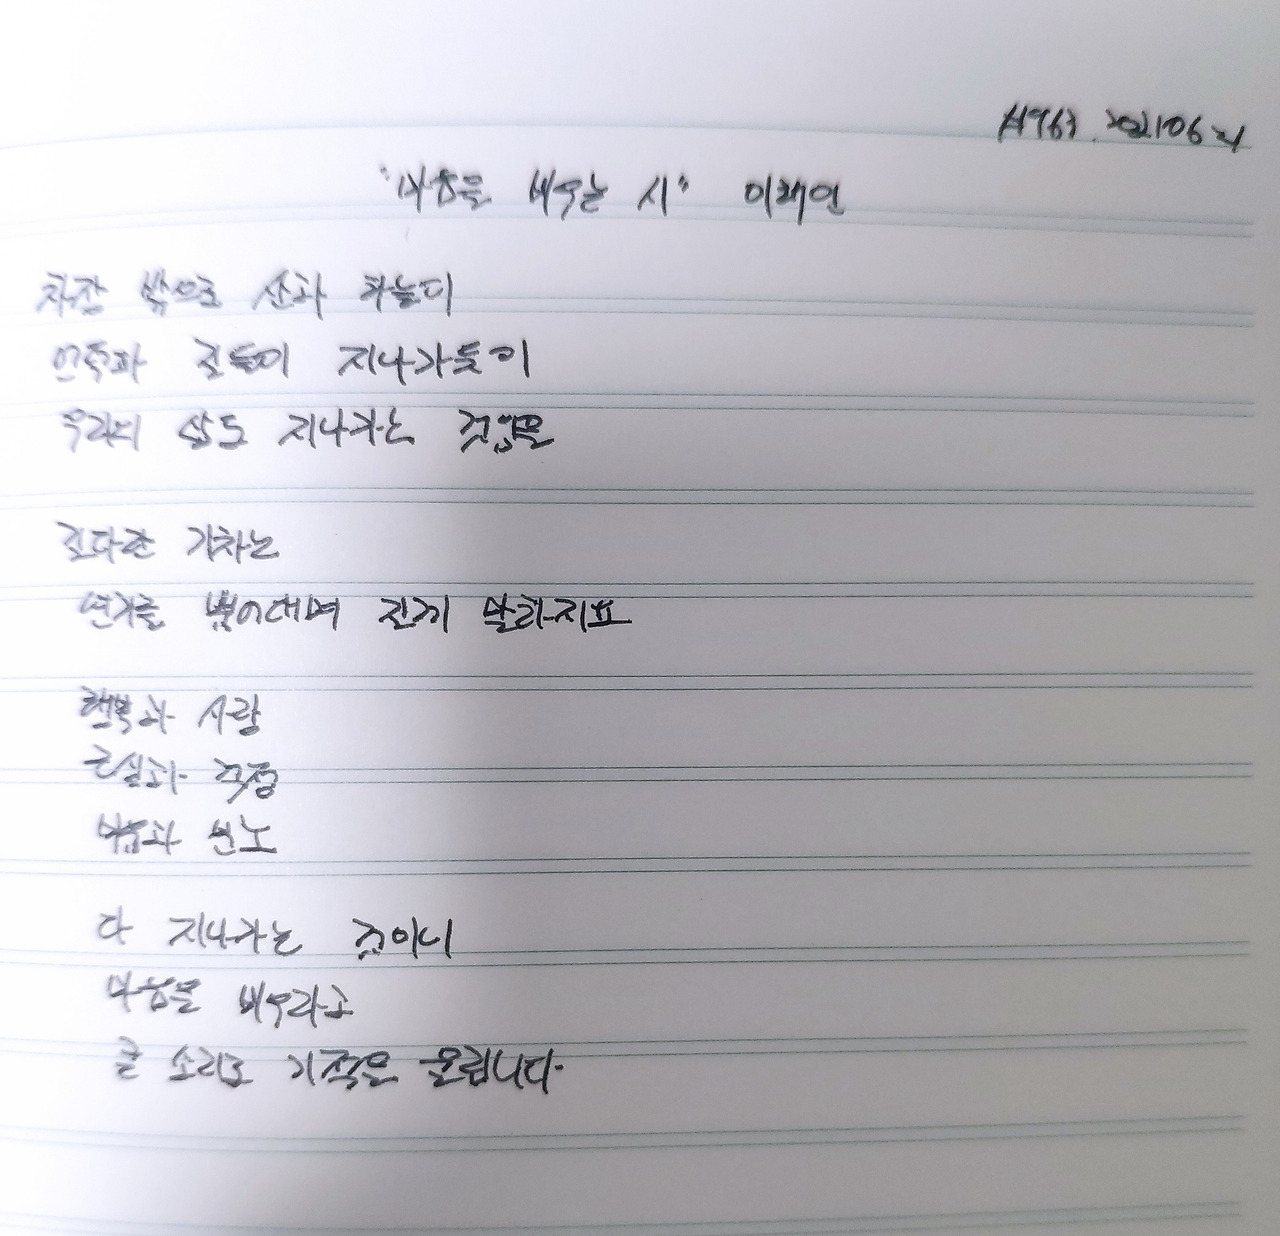 #963. 20210624
"마음을 비우는 시" 이해인
차창 밖으로 산과 하늘이
언덕과 길들이 지나가듯이
우리의 삶도 지나가는 것임을
길다란 기차는
연기를 뿜어대며 길게 말하지요
행복과 사랑
근심과 걱정
미움과 분노
다 지나가는 것이니
마음을 비우라고
큰 소리로 기적을 울립니다